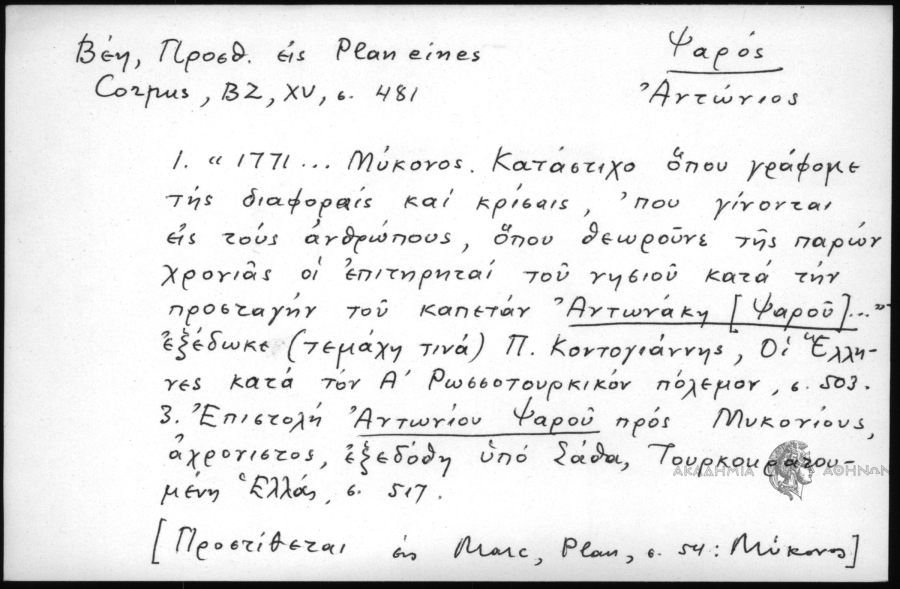 Βέη, Προσθ. εἰς Plan eines
Corpus, BZ, XV, σ. 481
Ψαρός
Ἀντώνιος
1. « 1771 ... Μύκονος. Κατάστιχο ὅπου γράφομε
τῆς διαφοραίς καί κρίσαις, 'που γίνονται
εἰς τούς ἀνθρώπους, ὅπου θεωροῦνε τῆς παρών
χρονιᾶς οἱ ἐπιτηρηταί τοῦ νησιοῦ κατά τήν
προσταγήν τοῦ καπετάν Ἀντωνάκη [Ψαροῦ]...»
ἐξέδωκε (τεμάχη τινά) Π. Κοντογιάννης, Οἱ Ἕλλη-
νες κατά τόν Α' Ρωσσοτουρκικόν πόλεμον, σ. 503.
3. Ἐπιστολή Ἀντωνίου Ψαροῦ πρός Μυκονίους,
ἀχρονιστος, ἐξεδόθη ὑπό Σάθα, Τουρκοκρατου-
μένη Ἑλλάς, σ. 517.
ΑΚΑΔΗΜΙΑ ΑΘΗΝΩΝ
[Προστίθεται εἰς Marc, Plan, σ. 54: Μύκονος]